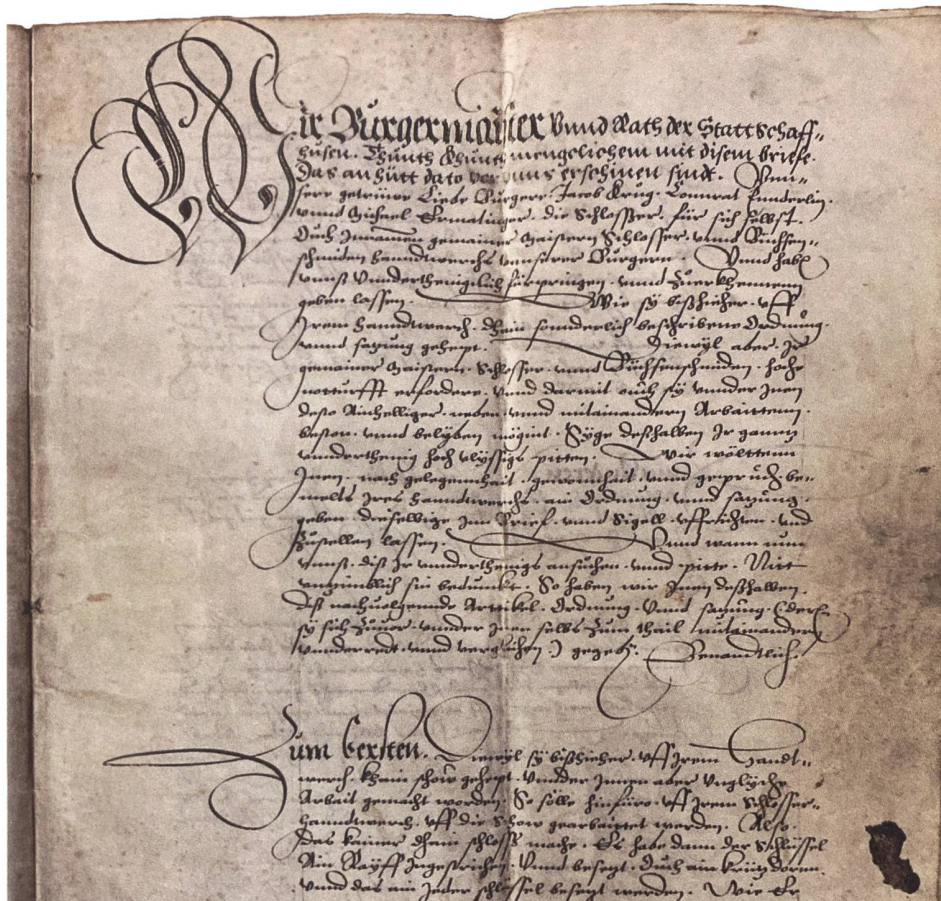 Wir Burgermaister Vnnd Rath der Statt Schaff-
husen. Thunth Khunth mengclichem mit disem briefe.
Das an hütt dato vor vnns erschinen sindt. Vnn-
sere getrüwe Liebe Burgere. Jacob Krug. Connrat Funderlin.
vnnd Michael Ermatinger. die Schlosser. für sich selbst.
Ouch Innamen gemainer Maistern Schlosser. vnnd Buchsen-
schmiden hanndtwerchs vnnserer Burgern. Vnnd habenn
vnnß vnnderthenigklich fürpringen. vnnd Zuerkhennenn
geben lassen. Wie sy bißhieher. vff
Irem hanndtwerch. Khein sonnderlich beschribene Ordnung.
vnnd satzung gehept. Diewyl aber. Ir
gemainer Maistern. Schlosser. vnnd Büchsenschmiden. hoche
notturfft erfordere. vnnd darmit ouch sy vnnder Inen
dero Ainhelliger. neben. vnnd mitainandern Arbaittenn.
beston. vnnd belyben mögint. Syge deßhalben Ir gannz
vnnderthenig hoch vlyssigs pitten. Wir wölttenn
Inen. nach gelegennhait. gewonnhait. vnnd gepruch. be-
melts Ires hanndtwerchs. ain Ordnung. vnnd satzung.
geben. dieselbige Inn Brief. vnnd Sigell. vffrichten. vnd
Zustellen lassen. Vnnd wann nun
vnnß. diß Ir vnnderthenigs ansuchen. vnnd pitte. Nitt
vnzimblich sin bedunkt. So haben wir Inen deßhalben.
Diß nachuolgennde Artikel. Ordnung. Vnnd satzung. (deren
sy sich Zuuor. vnnder Inen selbs Zum thail mitainandern
vnnderredt. vnnd verglichen.) gegeben. Benandtlich.
Zum Ersten. Diewyl sy bißhieher. vff Irem Handt-
werch. Khain schow gehept. Vnnder Innen aber Vnglyche
Arbait gemacht worden. So sölle hinfüro. vff Irem Schlosser-
hanndtwerch. vff die Schow gearbaittet werden. Also.
Das kainer Khein schloss mache. Er habe dann der Schlüssel
Ain Rayff Ingestrichen. Vnnd besetzt. Ouch ain krütz dorinn.
Vnnd das ain Jeder schlüssel besetzt werden. Wie Er